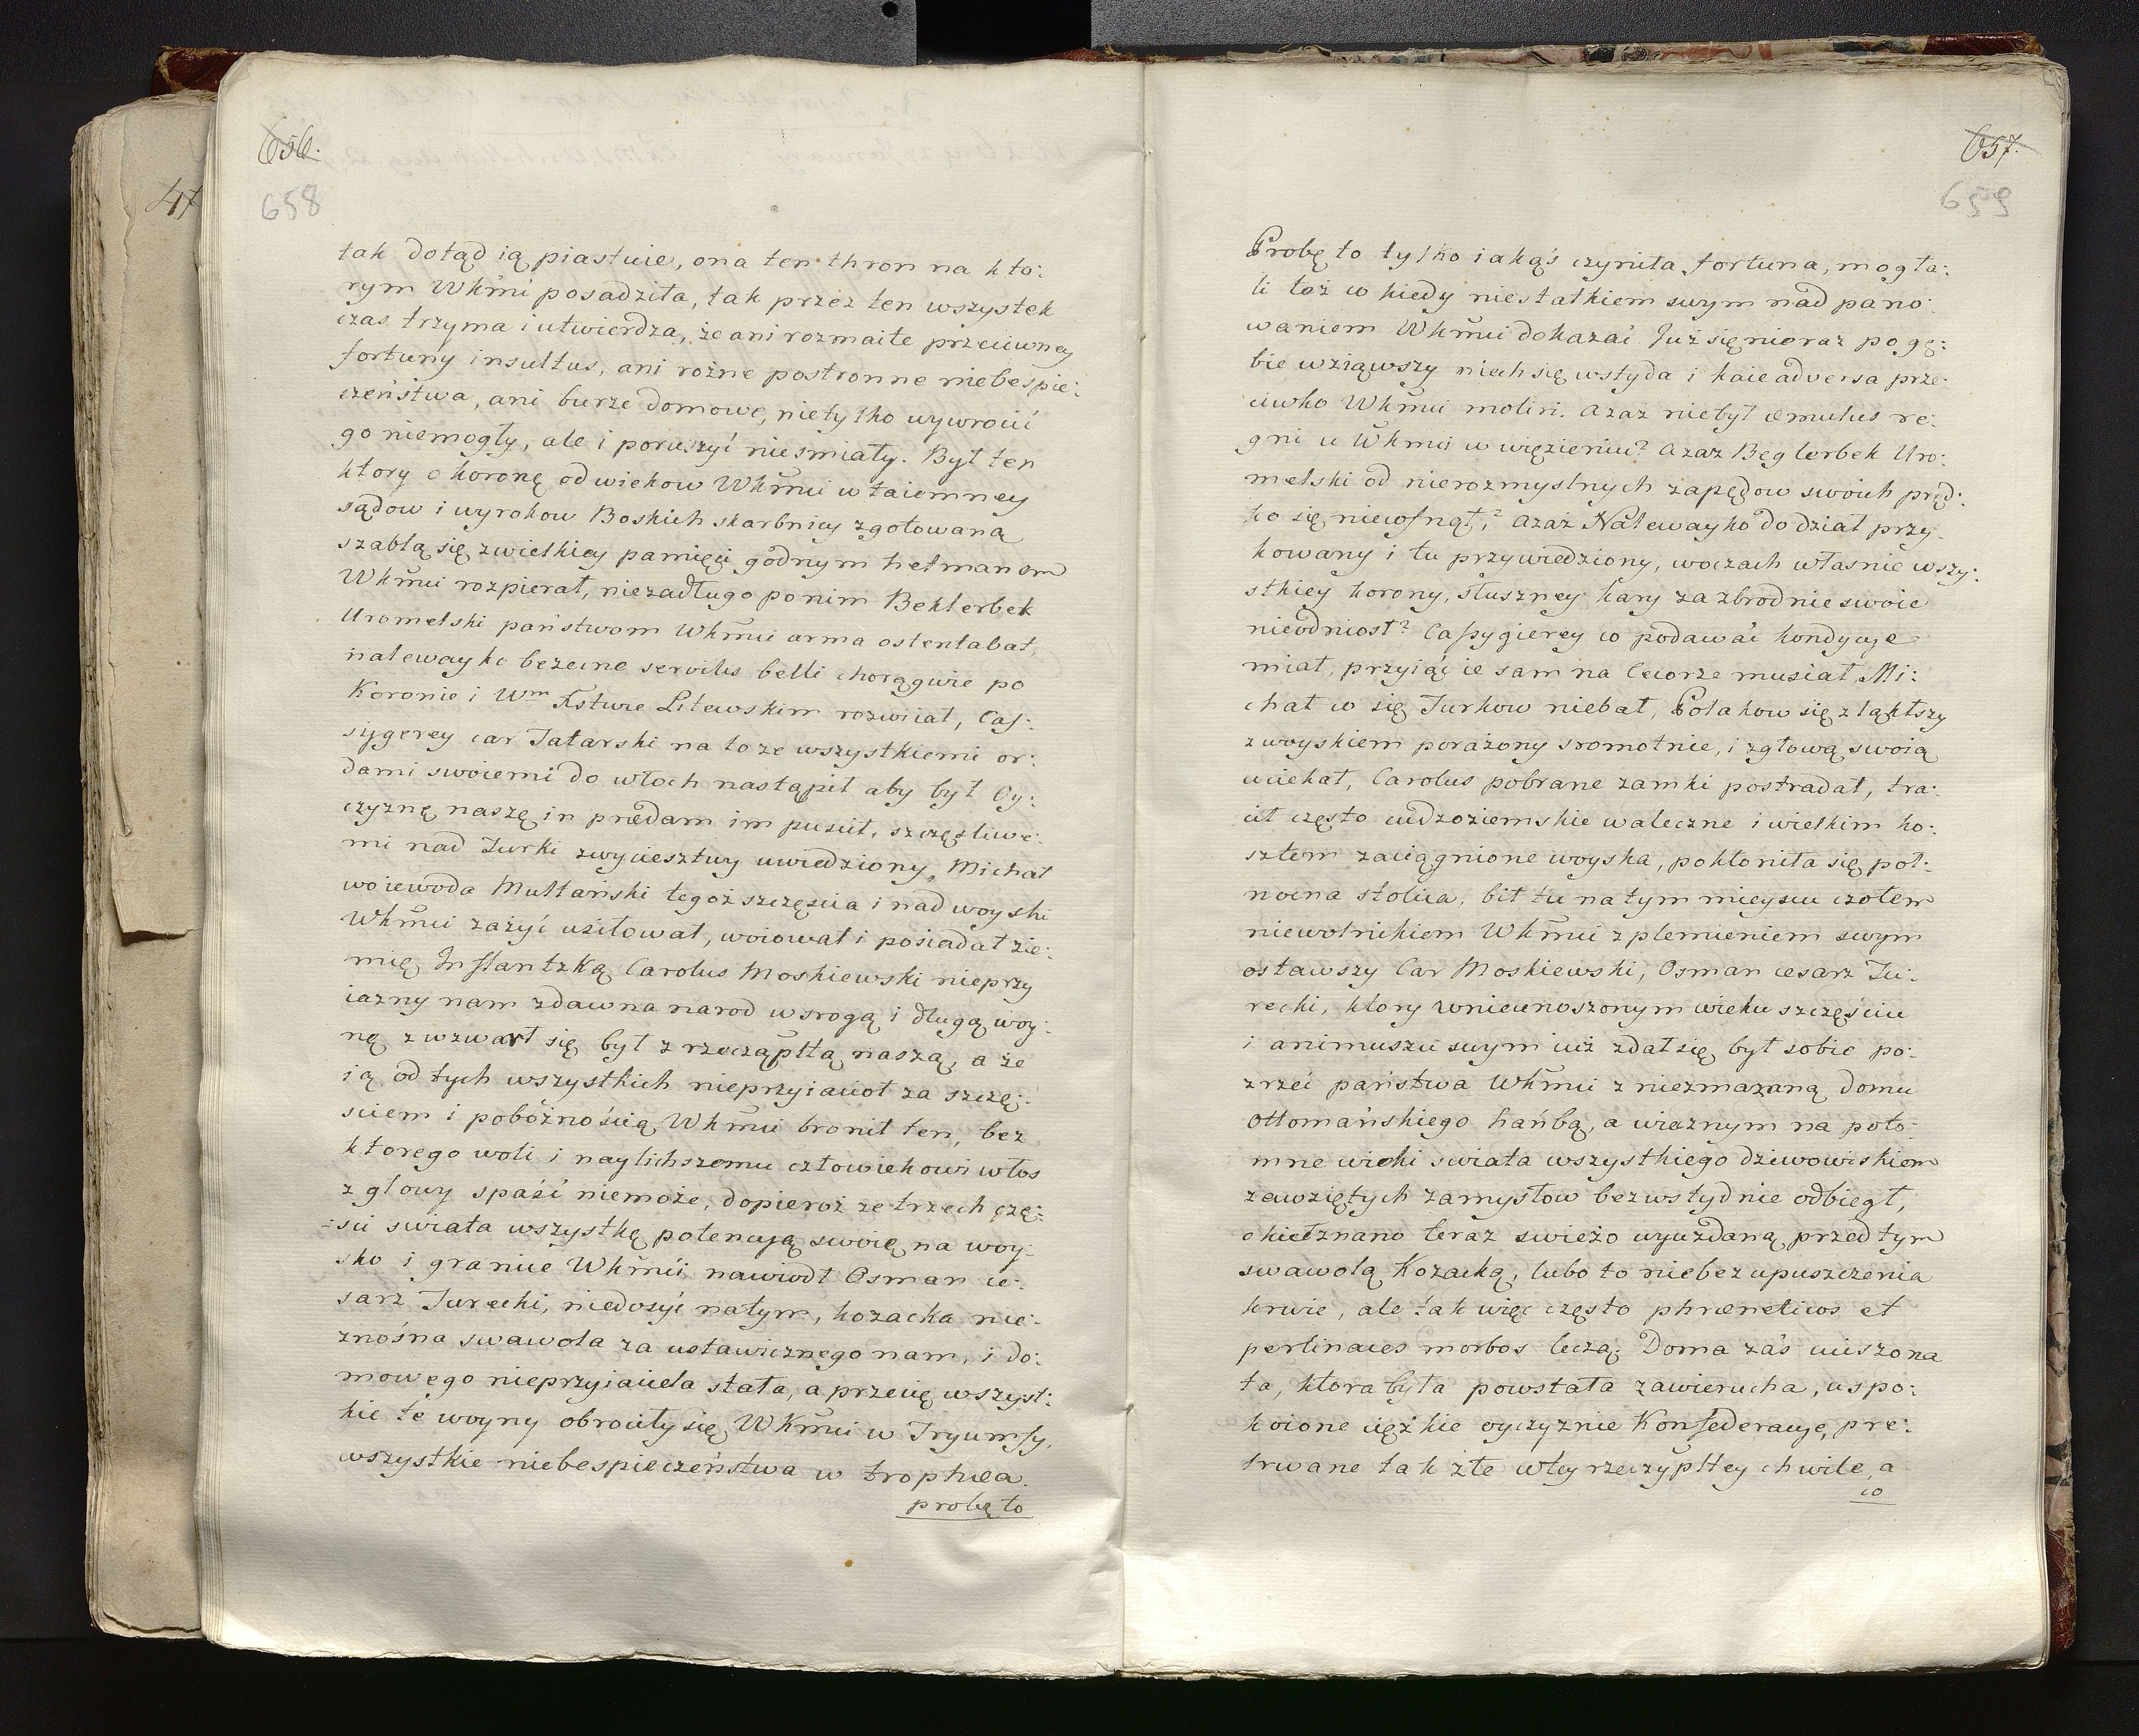 656.
658
tak dotąd ią piastuie, ona ten thron na kto:
rym WKm̃ci posadziła, tak przez ten wszystek
czas trzyma i utwierdza, że ani rozmaite przeciwney
fortuny insultus, ani rożne postronne niebespie:
czeństwa, ani burze domowe, nietylko wywrocić
go niemogły, ale i poruszyć niesmiały. Był ten
ktory o koronę odwiekow WKm̃ci w taiemney
sądow i wyrokow Boskich skarbnicy zgotowaną
szablą się zwielkiey pamięci godnym hetmanem
WKm̃ci rozpierał, niezadługo ponim Beklerbek
Uromelski państwom WKm̃ci arma ostentabat,
nalewayko bezecne servilis belli chorągwie po
Koronie i Wm Xstwie Litewskim rozwiiał, Cas:
sygerey car Tatarski na to ze wszystkiemi or:
dami swoiemi do włoch nastąpił aby był Oy:
czyznę naszę in prædam im puscił, szczęsliwe:
mi nad Turki zwyciesztwy uwiedziony, Michał
woiewoda Multański tegoż szczęscia i nad woyski
WKm̃ci zażyć usiłował, woiował i posiadał zie:
mię Inflantzką Carolus Moskiewski nieprzy
iazny nam zdawna narod wsrogą i długą woy:
nę zwzwarł się był z rzecząpltą naszą, a że
ią od tych wszystkich nieprzyiaciol za szczę:
sciem i pobożnością WKm̃ci bronił ten, bez
ktorego woli i naylichszemu człowiekowi włos
z głowy spaść niemoże, dopieroż ze trzech czę:
:sci swiata wszystkę potencyą swoię na woy:
sko i granice WKm̃ci nawiodł Osman ce:
sarz Turecki, niedosyć natym, kozacka nie:
znośna swawola za ustawicznego nam, i do:
mowego nieprzyiaciela stała, a przecię wszyst:
kie te woyny obrociły się WKm̃ci w Tryumfy,
wszystkie niebespieczeństwa w trophæa.
probę to
657.
659
Probę to tylko iakąś czyniła fortuna, mogła:
li toż co kiedy niestatkiem swym nad pano:
waniem WKm̃ci dokazać Już się nieraz po gę:
bie wziąwszy niech się wstyda i kaie adversa prze:
ciwko WKm̃ci moliri. azaż niebył æmulus re:
gni u WKm̃ci w więzieniu? azaz Beglerbek Uro:
melski od nierozmyslnych zapędow swoich pręd:
ko się niecofnął,? azaż Nalewayko do dział przy:
kowany i tu przywiedziony, woczach własnie wszy:
stkiey korony, słuszney kary za zbrodnie swoie
nieodniosł? Cassygierey co podawać kondycye
miał, przyiąć ie sam na Cecorze musiał, Mi:
chał co się Turkow niebał, Polakow się zląkłszy
zwoyskiem porażony sromotnie, i zgłową swoią
uciekał, Carolus pobrane zamki postradał, tra:
cił często cudzoziemskie waleczne i wielkim ko:
sztem zaciągnione woyska, pokłoniła się poł:
nocna stolica, bił tu na tym mieyscu czołem
niewolnikiem WKm̃ci z plemieniem swym
ostawszy Car Moskiewski, Osman cesarz Tu:
recki, ktory wnieunoszonym wieku szczęściu
i animuszu swym iuż zdał się był sobie po:
zrzeć państwa WKm̃ci z niezmazaną domu
Ottomańskiego hańbą, a wiecznym na poto:
mne wieki swiata wszystkiego dziwowiskiem
zawziętych zamysłow bezwstydnie odbiegł,
okiełznano teraz swieżo wyuzdaną przed tym
swawolą Kozacką, lubo to niebez upuszczenia
krwie, ale tak więc często phræneticos et
pertinaces morbos leczą. Doma zaś uciszona
ta, ktora była powstała zawierucha, uspo:
koione ciężkie oyczyznie Konfederacye, prze:
trwane tak złe wtey rzeczypltey chwile, a
co